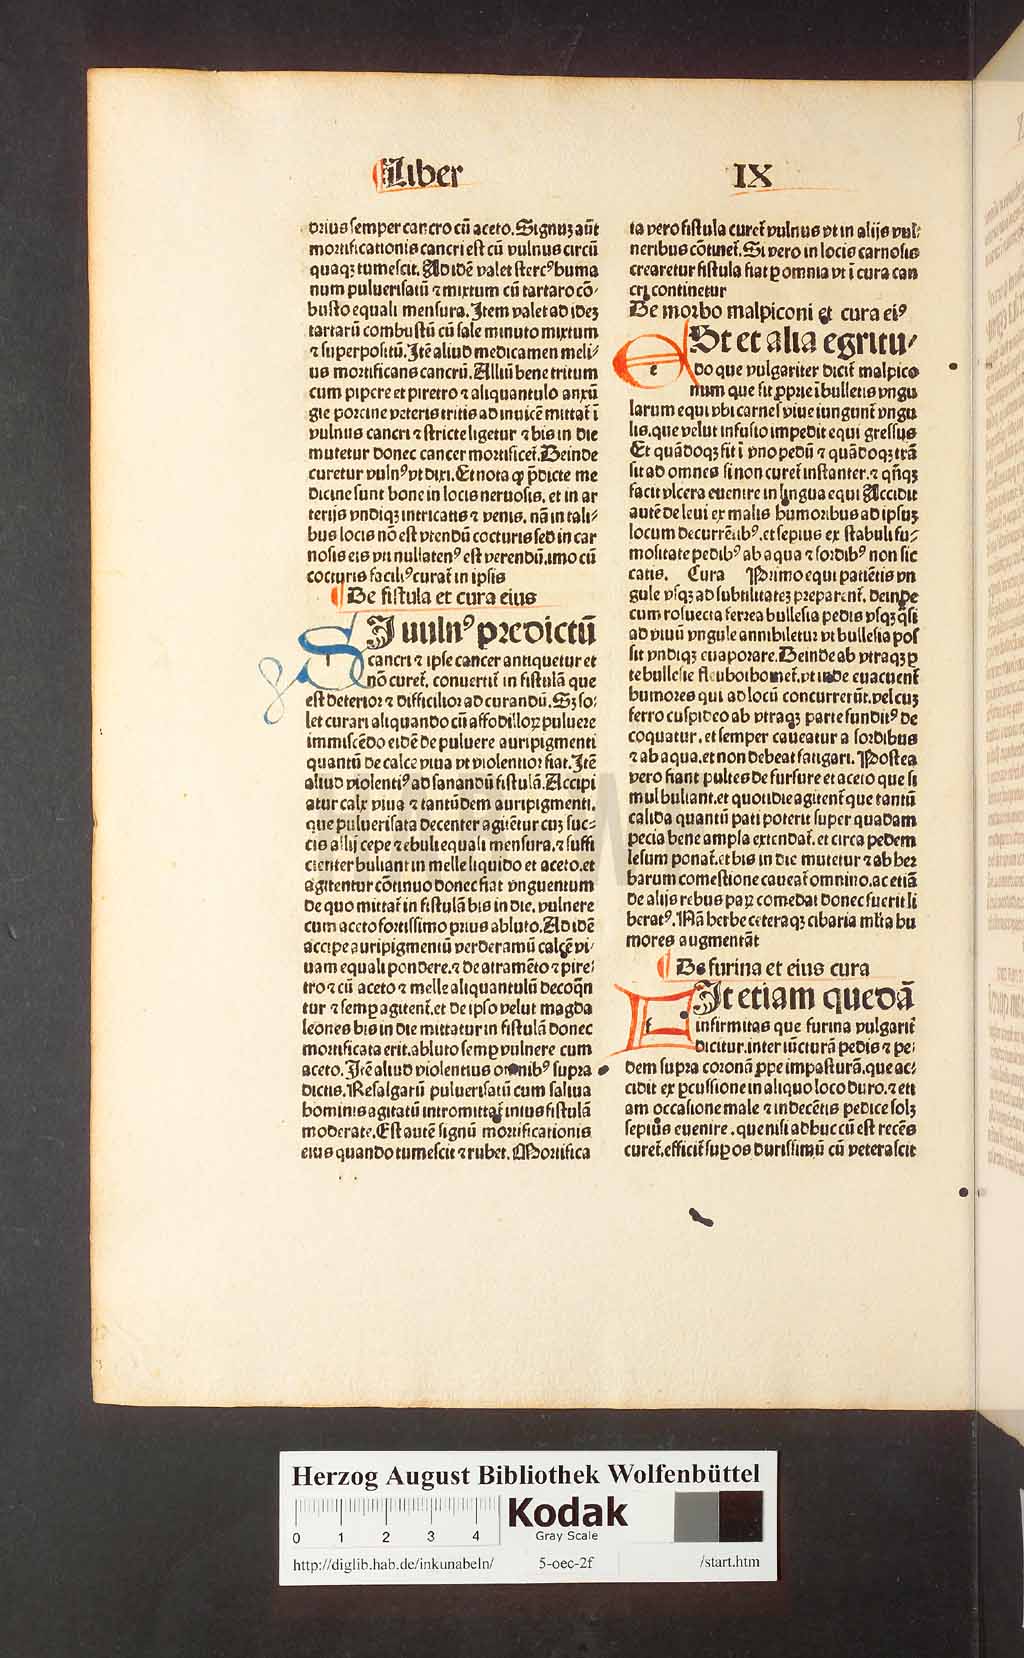 Liber
IX
orius semper cancro cū aceto. Signuꝫ aūt
mortificationis cancri est cū vulnus circū
quaqꝫ tumescit. Ad idē valet stercꝰ huma
num puluerisatū ⁊ mixtum cū tartaro cō-
busto equali mensura. Item valet ad ideꝫ
tartarū combustū cū sale minuto mixtum
⁊ superpositū. Itē aliud medicamen meli-
us mortificans cancrū. Alliū bene tritum
cum pipere et piretro ⁊ aliquantulo anxū
gie porcine veteris tritis ad inuicē mittat᷑ ī
vulnus cancri ⁊ stricte ligetur ⁊ bis in die
mutetur donec cancer mortificet᷑. Deinde
curetur vulnꝰ vt dixi. Et nota ꝙ p̄dicte me
dicine sunt bone in locis neruosis, et in ar
terijs vndiqꝫ intricatis ⁊ venis. nā in tali-
bus locis nō est vtendū cocturis sed in car
nosis eis vti nullatenꝰ est verendū.imo cū
cocturis faciliꝰ curat᷑ in ipsis
De fistula et cura eius
SI vulnꝰ predictū
cancri ⁊ ipse cancer antiquetur et
nō curet᷑, conuertit᷑ in fistulā que
est deterior ⁊ difficilior ad curandū. Sꝫ so-
let curari aliquando cū affodilloꝝ puluere
immiscēdo eidē de puluere auripigmenti
quantū de calce viua vt violentior fiat. Itē
aliud violentiꝰ ad sanandū fistulā. Accipi
atur calx viua ⁊ tantūdem auripigmenti.
que puluerisata decenter agitētur cuꝫ suc-
cis allij cepe ⁊ ebuli equali mensura.⁊ suffi
cienter buliant in melle liquido et aceto.et
agitentur cōtinuo donec fiat vnguentum
de quo mittat᷑ in fistulā bis in die. vulnere
cum aceto fortissimo prius abluto. Ad idē
accipe auripigmentū verderamū calcē vi-
uam equali pondere.⁊ de atramēto ⁊ pire-
tro ⁊ cū aceto ⁊ melle aliquantulū decoqn̄
tur ⁊ semꝑ agitent᷑.et de ipso velut magda
leones bis in die mittatur in fistulā donec
mortificata erit.abluto semꝑ vulnere cum
aceto. Itē aliud violentius omnibꝰ supra
dictis. Resalgarū puluerisatū cum saliua
hominis agitatū intromittat᷑ intus fistulā
moderate. Est autē signū mortificationis
eius quando tumescit ⁊ rubet. Mortifica
ta vero fistula curet᷑ vulnus vt in alijs vul-
neribus cōtinet᷑. Si vero in locis carnosis
crearetur fistula fiat ꝑ omnia vt ī cura can
cri continetur
De morbo malpiconi et cura eiꝰ
ESt et alia egritu-
do que vulgariter dicit᷑ malpico
num que fit ꝓprie ī bulletis vngu
larum equi vbi carnes viue iungunt᷑ vngu
lis.que velut infusio impedit equi gressus
Et quādoqꝫ fit ī vno pedū ⁊ quādoqꝫ trā
sit ad omnes si non curet᷑ instanter.⁊ qn̄qꝫ
facit vlcera euenire in lingua equi Accidit
autē de leui ex malis humoribus ad ipsuꝫ
locum decurrētibꝰ.et sepius ex stabuli fu-
mositate pedibꝰ ab aqua ⁊ sordibꝰ non sic
catis. Cura Primo equi patiētis vn
gule vsqꝫ ad subtilitateꝫ preparent᷑. deinde
cum rosuecta ferrea bullesia pedis vsqꝫ q̄si
ad viuū vngule annihiletur vt bullesia pos
sit vndiqꝫ euaporare. Deinde ab vtraqꝫ ꝑ
te bullesie fleubothomet᷑.vt inde euacuent᷑
humores qui ad locū concurrerūt.vel cuꝫ
ferro cuspideo ab vtraqꝫ parte funditꝰ de
coquatur.et semper caueatur a sordibus
⁊ ab aqua.et non debeat fatigari. Postea
vero fiant pultes de furfure et aceto que si
mul buliant.et quotidie agitent᷑ que tantū
calida quantū pati poterit super quadam
pecia bene ampla extendat᷑.et circa pedem
lesum ponat᷑.et bis in die mutetur ⁊ ab her
barum comestione caueat᷑ omnino.ac etiā
de alijs rebus paꝝ comedat donec fuerit li
beratꝰ. Nā herbe ceteraqꝫ cibaria ml̄ta hu
mores augmentāt
De furina et eius cura
FIt etiam quedā
infirmitas que furina vulgarit᷑
dicitur.inter iūcturā pedis ⁊ pe-
dem supra coronā ꝓpe impasturā.que ac-
cidit ex ꝑcussione in aliquo loco duro.⁊ eti
am occasione male ⁊ indecētis pedice solꝫ
sepius euenire.que nisi adhuc cū est recēs
curet᷑.efficit᷑ suꝑ os durissimū cū veterascit
Herzog August Bibliothek Wolfenbüttel
0 1 2 3 4
Kodak
Gray Scale
http://diglib.hab.de/inkunabeln/ 5-oec-2f /start.htm